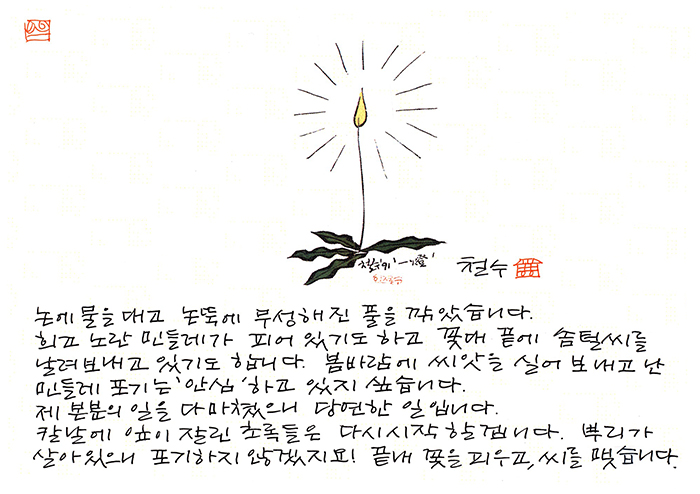 철수'91 '一燈'
철수
논에 물을 대고 논뚝에 무성해진 풀을 깎았습니다.
희고 노란 민들레가 피어 있기도 하고 꽃대 끝에 솜털씨를
날려보내고 있기도 합니다. 봄바람에 씨앗을 실어 보내고 난
민들레 포기는 '안심'하고 있지 싶습니다.
제 본분의 일을 다 마쳤으니 당연한 일입니다.
칼날에 잎이 잘린 초록들은 다시 시작할겝니다. 뿌리가
살아있으니 포기하지 않겠지요! 끝내 꽃을 피우고, 씨를 맺습니다.